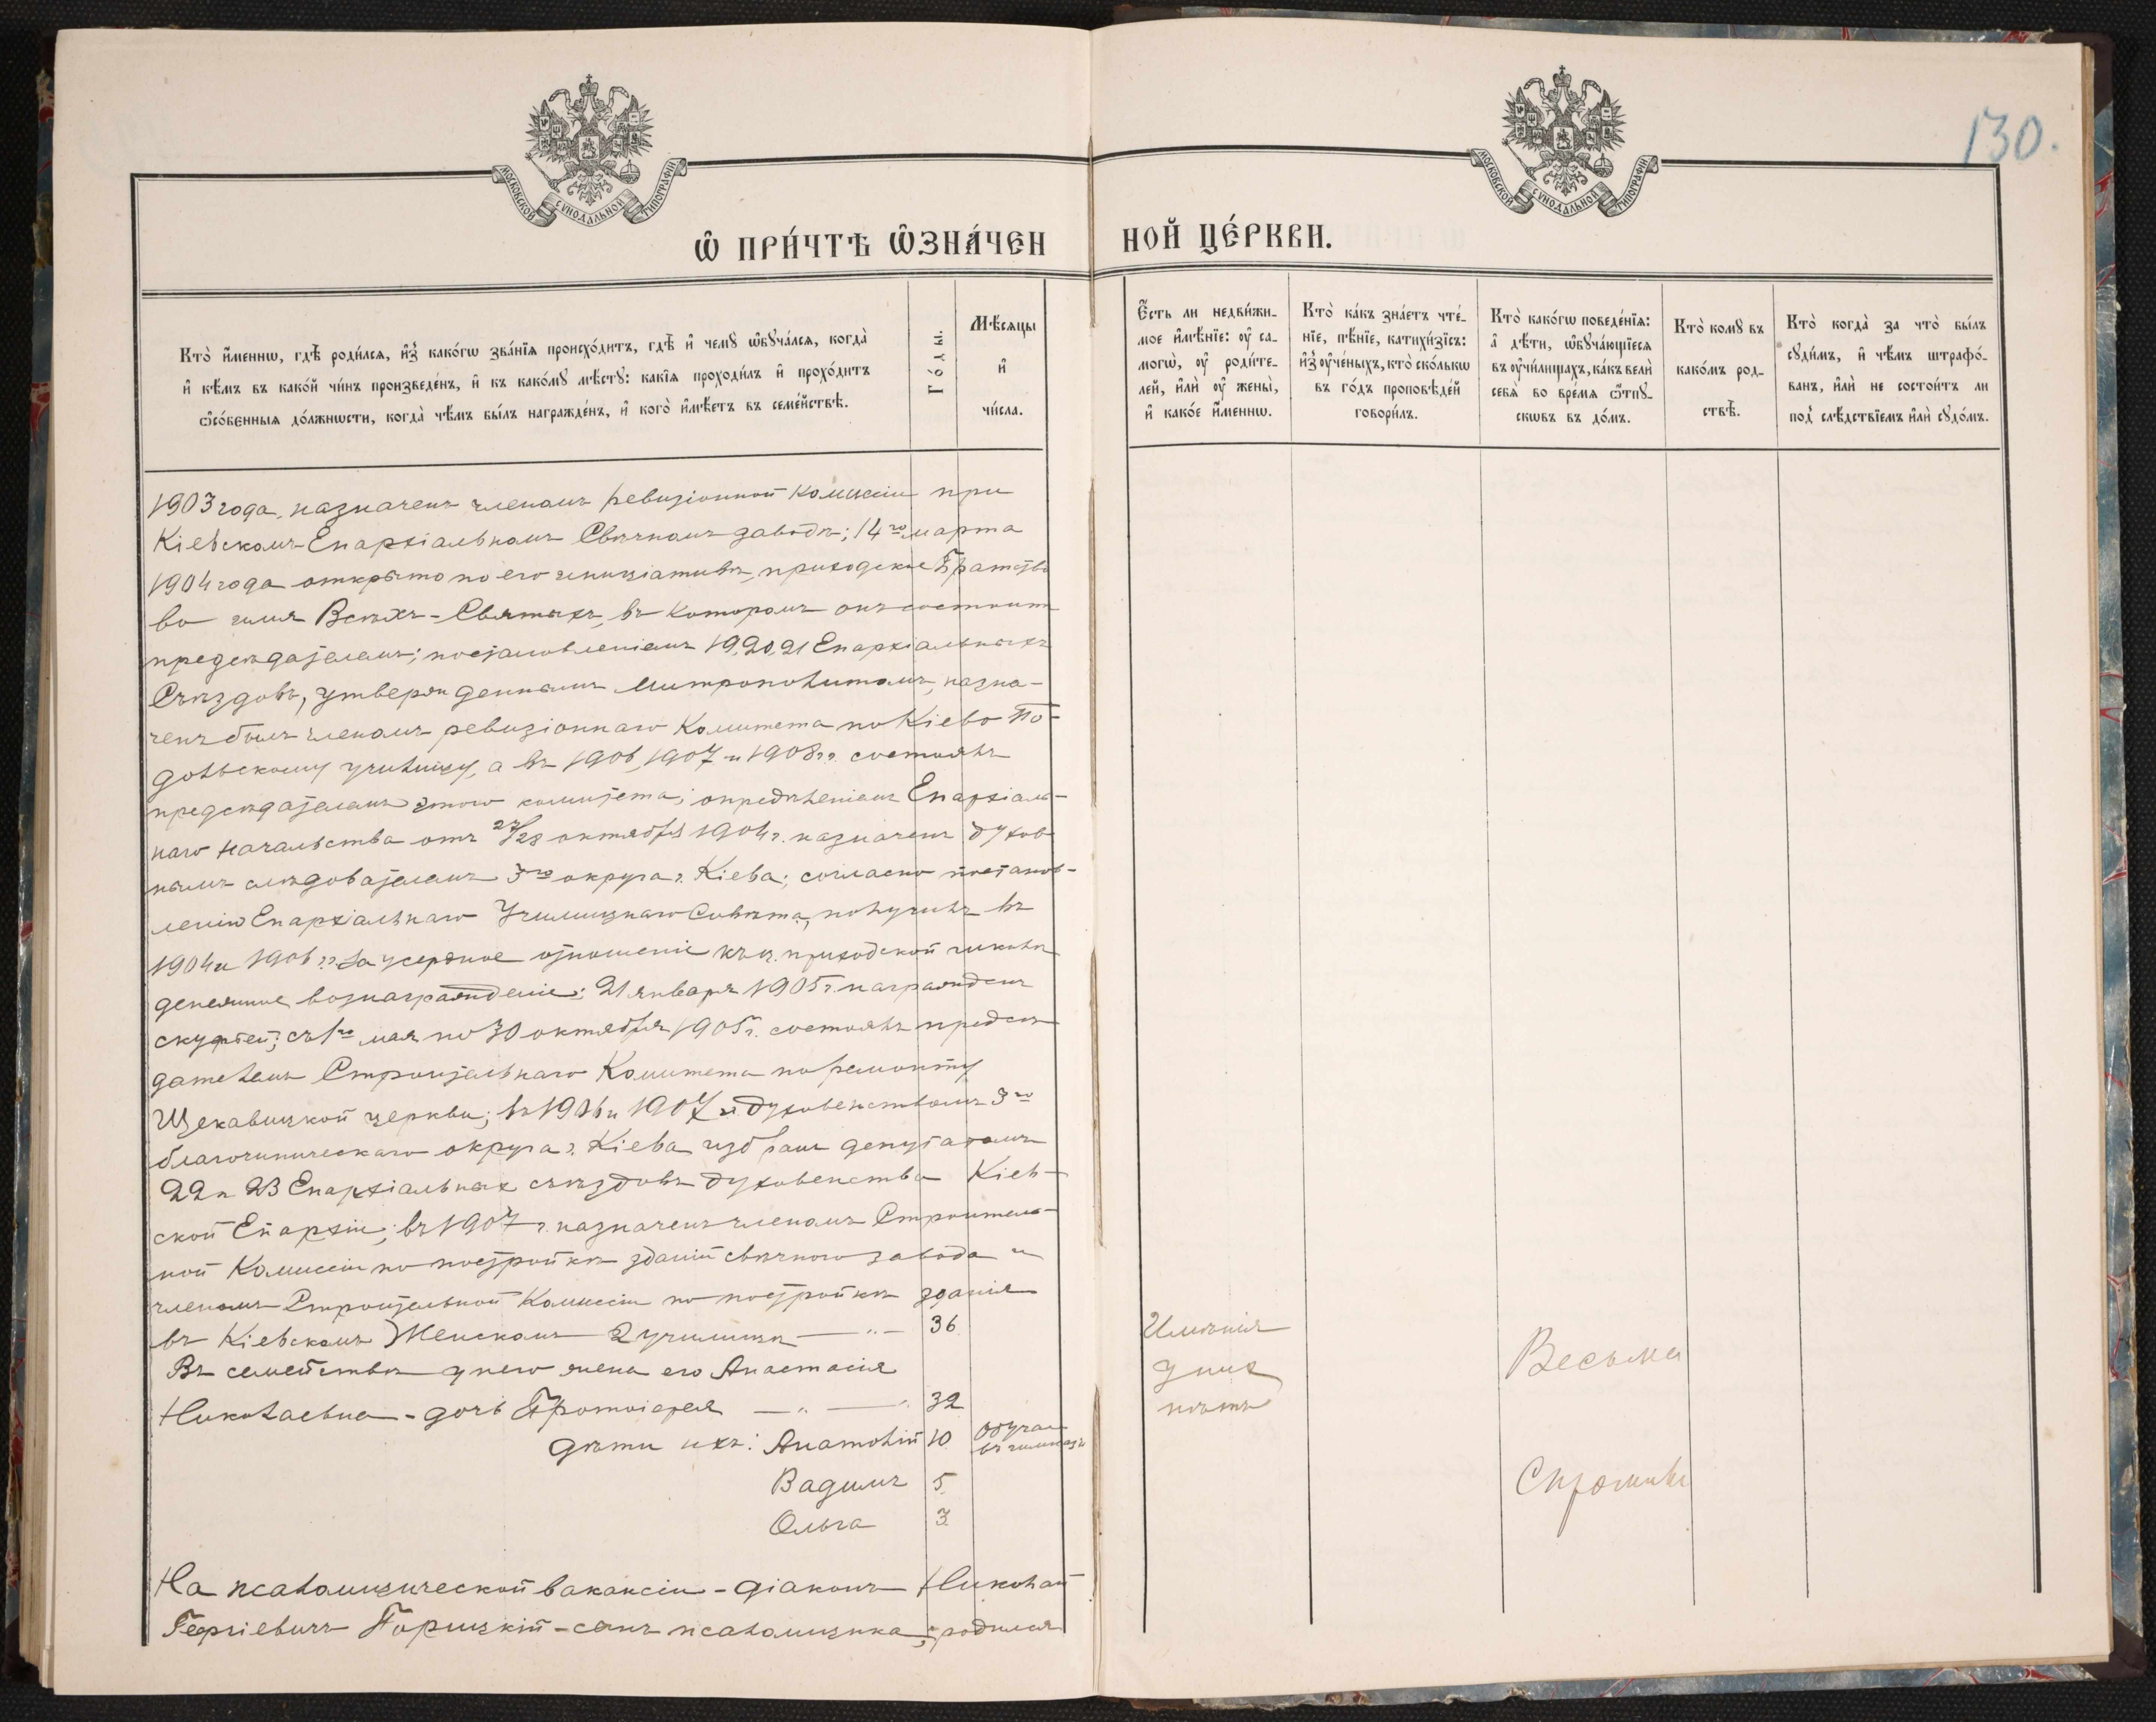 130.
МОСКОВСКОЙ СѴНОДАЛЬНОЙ ТИПОГРАФІИ
МОСКОВСКОЙ СѴНОДАЛЬНОЙ ТИПОГРАФІИ
Ѡ ПРИ́ЧТѢ ѠЗНА́ЧЕН
НОЙ ЦЕ́РКВИ.
Кто̀ и҆́менно, гдѣ̀ роди́лсѧ, и҆з̾ како́гѡ зва́нїѧ происхо́дитъ, гдѣ̀ и҆ чемꙋ̀ ѡ҆бꙋча́лсѧ, когда̀
и҆ кѣ́мъ въ како́й чи́нъ произведе́нъ, и҆ къ како́мꙋ мѣ́стꙋ: какі̑ѧ проходи́лъ и҆ прохо́дитъ
ѡ҆со́бенныѧ до́лжнѡсти, когда̀ чѣ́мъ бы́лъ награжде́нъ, и҆ кого̀ и҆мѣ́етъ въ семе́йствѣ.
Го́ды.
Мѣ́сѧцы
и҆
чи́сла.
Є҆́сть ли недви́жи-
мое и҆мѣ́нїе: оу҆ са-
могѡ̀, оу҆ роди́те-
лей, и҆лѝ оу҆ жены̀,
и҆ како́е и҆́меннѡ.
Кто̀ ка́къ зна́етъ чте́-
нїе, пѣ́нїе, катихи́зїсъ:
и҆з̾ оу҆че́ныхъ, кто̀ ско́лькѡ
въ го́дъ проповѣ́дей
говори́лъ.
Кто̀ како́гѡ поведе́нїѧ:
а҆ дѣ́ти, ѡ҆бꙋча́ющїесѧ
въ оу҆чи́лищахъ, ка́къ велѝ
себѧ̀ во вре́мѧ ѿпꙋ-
скѡвъ въ до́мъ.
Кто̀ комꙋ̀ въ
како́мъ род-
ствѣ̀.
Кто̀ когда̀ за что̀ бы́лъ
сꙋди́мъ, и҆ чѣ́мъ штрафо́-
ванъ, и҆лѝ не состои́тъ ли
под̾ слѣ́дствїемъ и҆лѝ сꙋдо́мъ.
1903 года, назначенъ членомъ ревизіонной комиссіи при
Кіевскомъ Епархіальномъ Свѣчномъ заводѣ; 14го марта
1904 года открыто по его иниціативѣ, приходское Братство
во имя Всѣхъ-Святыхъ, въ которомъ онъ состоитъ
предсѣдателемъ; постановленіемъ 19, 20, 21 Епархіальныхъ
Съѣздовъ, утвержденнымъ Митрополитомъ, назна-
ченъ былъ членомъ ревизіоннаго Комитета по Кіево По-
дольскому училищу, а въ 1906, 1907 и 1908 гг. состоялъ
предсѣдателемъ этого комитета; опредѣленіемъ Епархіаль-
наго Начальства отъ 27/28 октября 1904 г. назначенъ духов-
нымъ слѣдователемъ 3го округа г. Кіева; согласно постанов-
ленію Епархіальнаго Училищнаго Совѣта, получилъ въ
1904 и 1906 гг. за усердное отношеніе къ ц. приходской школѣ
денежное вознагражденіе; 21 января 1905 г. награжденъ
скуфьей; съ 1го мая по 30 октября 1905 г. состоялъ предсѣ-
дателемъ Строительнаго Комитета по ремонту
Щекавицкой церкви; въ 1906 и 1907 гг. духовенствомъ 3го
благочинническаго округа г. Кіева избранъ депутатомъ
22 и 23 Епархіальныхъ съѣздовъ духовенства Кіев-
ской Епархіи; въ 1907 г. назначенъ членомъ Строитель-
ной Комиссіи по постройкѣ зданій свѣчного завода и
членомъ Строительной Комиссіи по постройкѣ зданія
въ Кіевскомъ Женскомъ 2 училищѣ — " — 36
Въ семействѣ у него жена его Анастасія
Николаевна - дочь Протоіерея — " — " 32
дѣти ихъ: Анатолій 10 Обучает.
въ гимназіи
Вадимъ 5.
Ольга 3.
На псаломщической вакансіи - діаконъ Николай
Георгіевичъ Горицкій - сынъ псаломщика; родился
Имѣнія
у них
нѣтъ
Весьма
Скромны